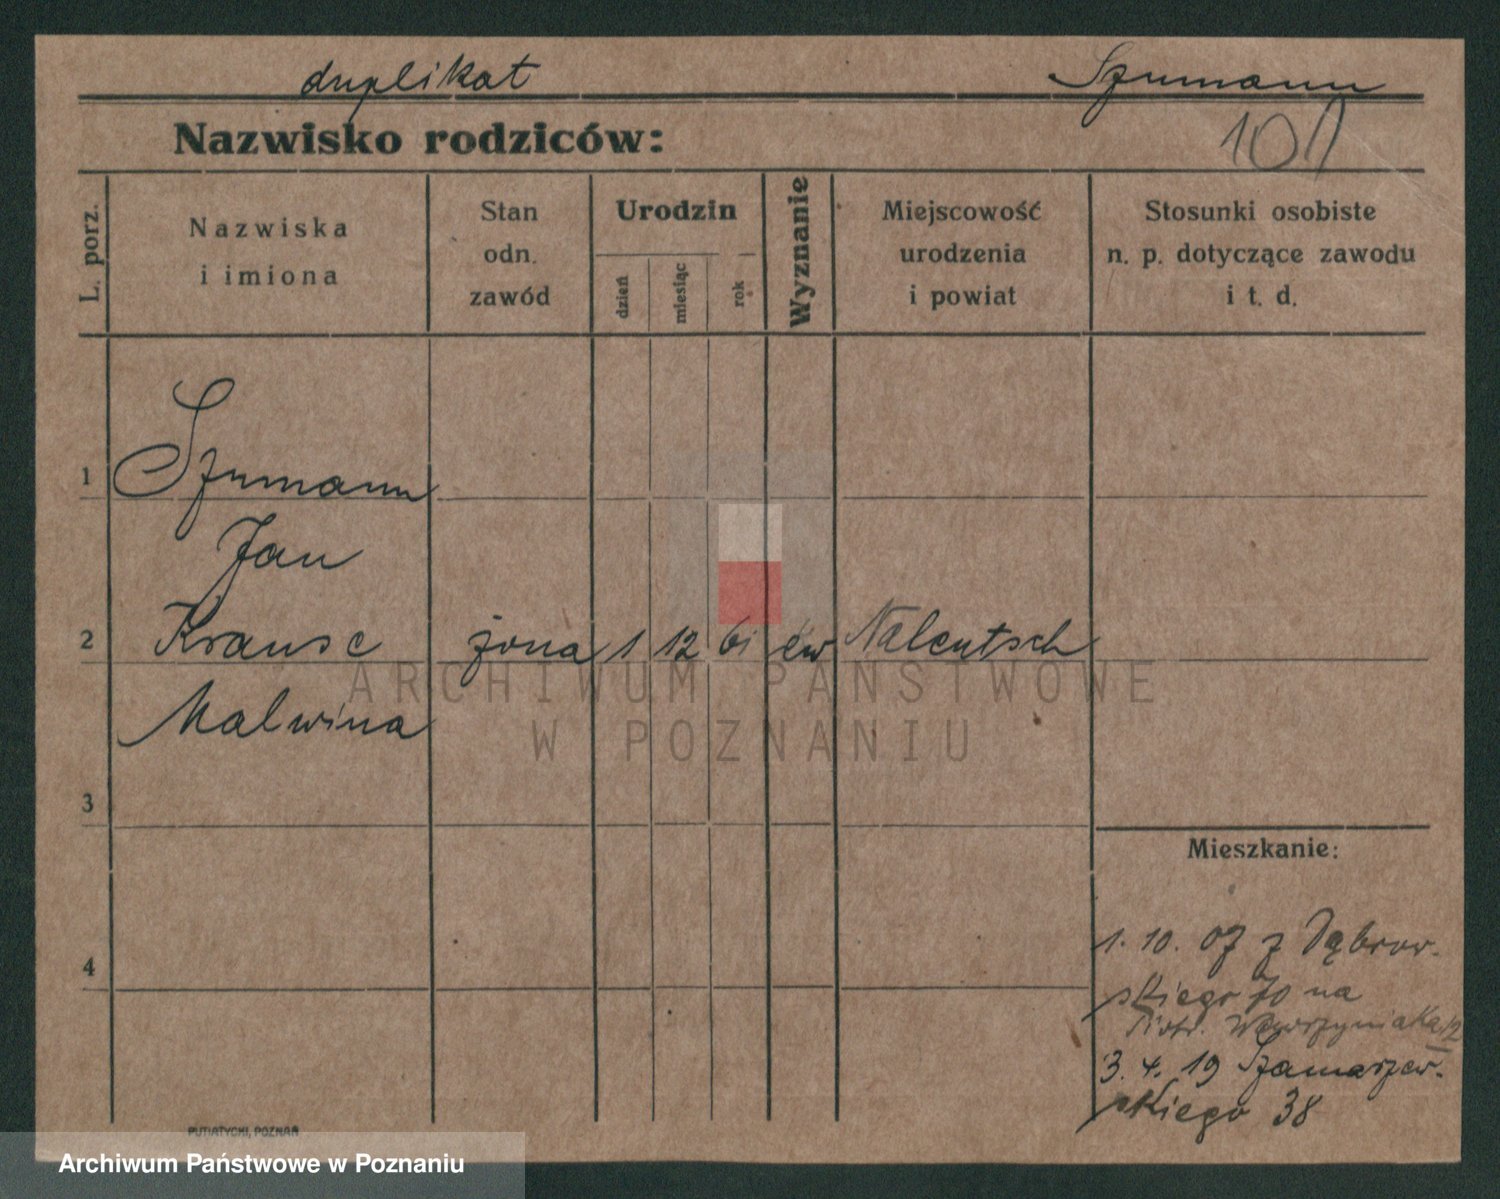 duplikat Szumann
Nazwisko rodziców:
L. porz.
Nazwiska
i imiona
Stan
odn.
zawód
Urodzin
dzień
miesiąc
rok
Wyznanie
Miejscowość
urodzenia
i powiat
Stosunki osobiste
n. p. dotyczące zawodu
i t. d.
1 Szumann
Jan
2 Krause żona 1 12 61 ew Nalentsch
Malwina
3
Mieszkanie:
4
1. 10. 07 z Dąbrow-
skiego 70 na
Piotr. Wawrzyniaka 12
3. 4. 19 Szamarzew-
skiego 38
PUTIATYCKI, POZNAŃ
ARCHIWUM PAŃSTWOWE
W POZNANIU
Archiwum Państwowe w Poznaniu